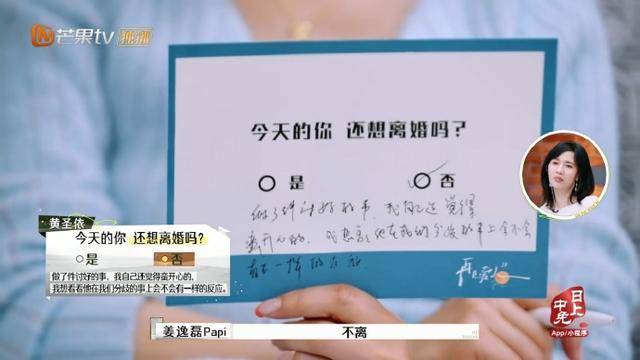 芒果tv 独播
今天的你 还想离婚吗？
是 否
做了件讨好的事，我自己还觉得
蛮开心的，我想看看他在我们分歧的事上会不会
有一样的反应
再见爱人
黄圣依
今天的你? 还想离婚吗?
是 否
做了件讨好的事，我自己还觉得蛮开心的，
我想看看他在我们分歧的事上会不会有一样的反应。
姜逸磊Papi 不离
中免日上
App/小程序